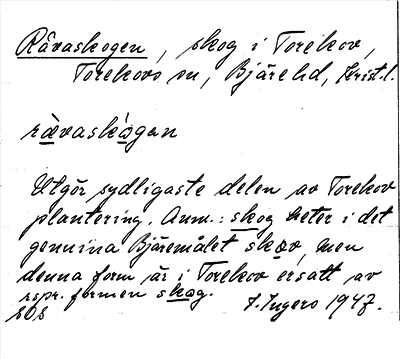 Råvaskogen, skog i Torekov,
Torekovs sn, Bjäre hd, Krist.l.
råvaskògen
Utgör sydligaste delen av Torekov
plantering. Anm.: skog heter i det
genuina Bjäremålet skov, men
denna form är i Torekov ersatt av
rspr. formen skog.
SOS I. Ingers 1947.